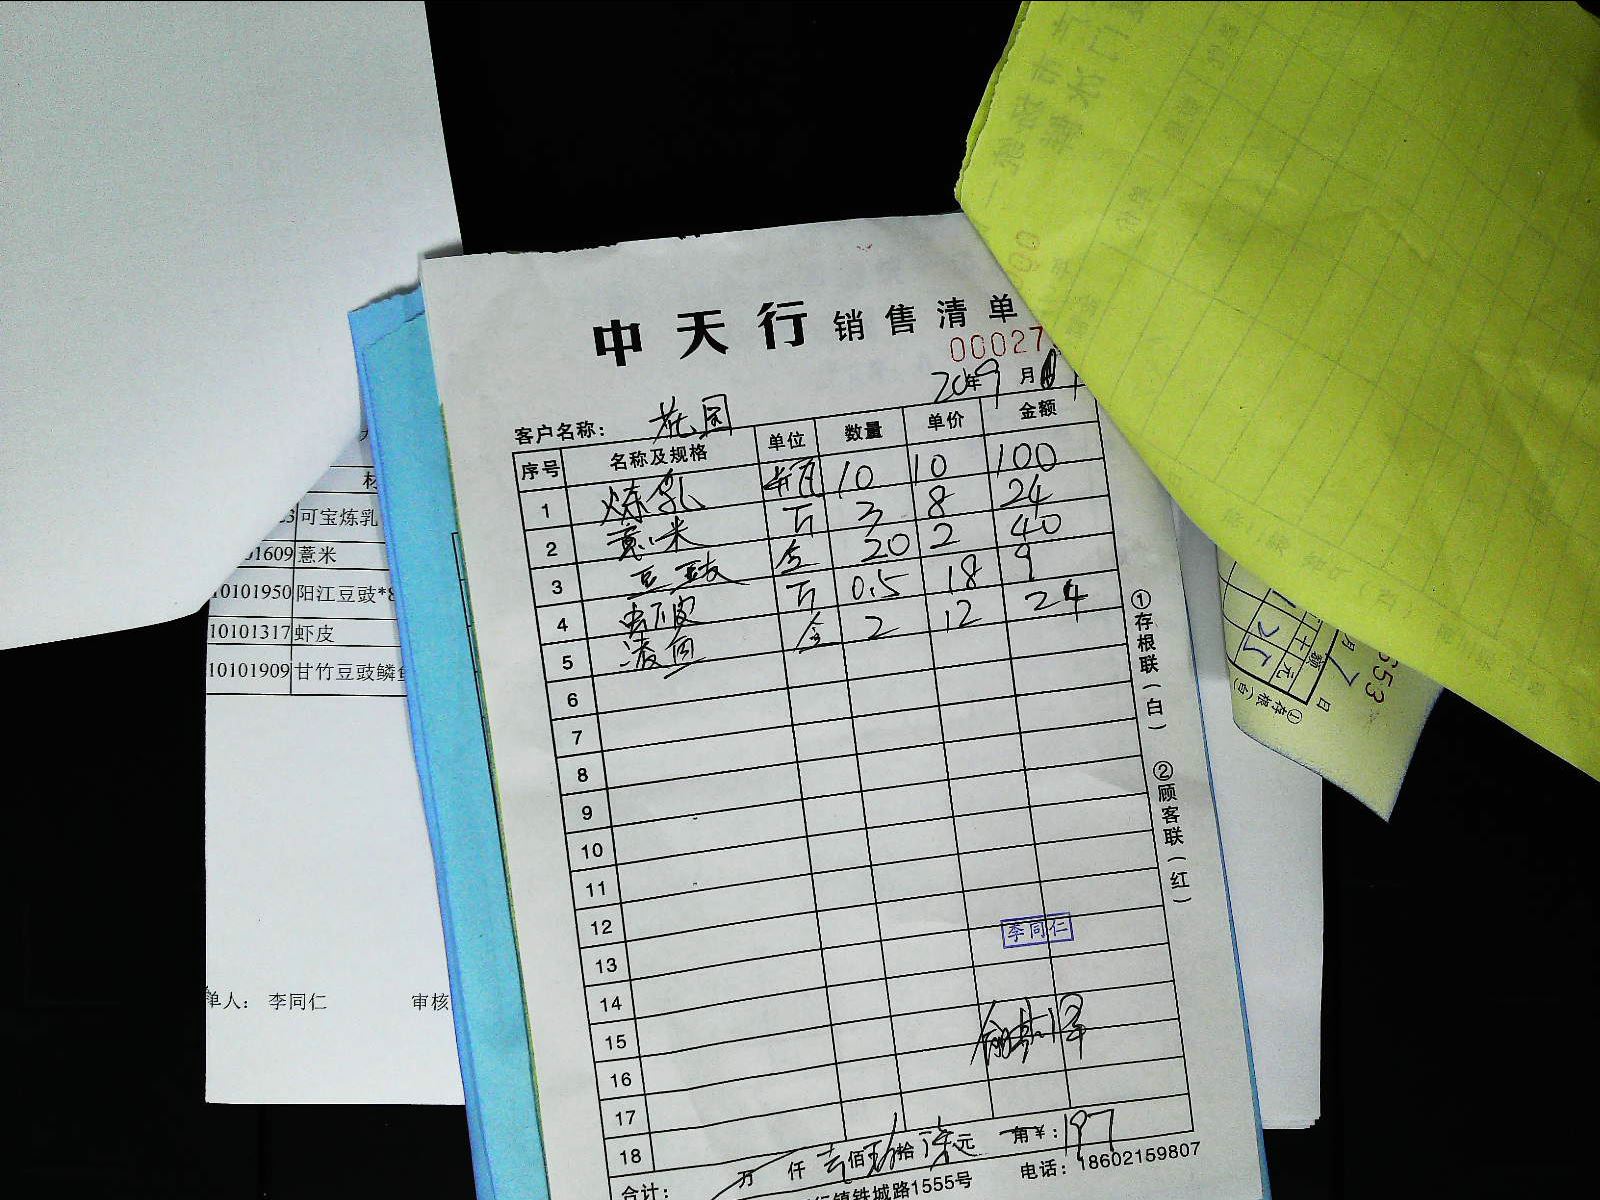 中天行 销售清单
00027
20年9月
客户名称: 花园
序号 名称及规格 单位 数量 单价 金额
1 炼乳 瓶 10 10 100
2 薏米 斤 3 8 24
3 豆豉 盒 20 2 40
4 虾皮 斤 0.5 18 9
5 凌鱼 盒 2 12 24
6
7
8
9
10
11
12
13
14
15
16
17
18
李同仁
合计: 万 仟 壹佰 玖拾 柒元 角 ¥: 197
镇铁城路1555号 电话: 18602159807
①存根联(白) ②顾客联(红)
材
3 可宝炼乳
01609 薏米
10101950 阳江豆豉*8
10101317 虾皮
10101909 甘竹豆豉鳞鱼
单人: 李同仁 审核
653
月 7 日
额
十 元
①存根(白)